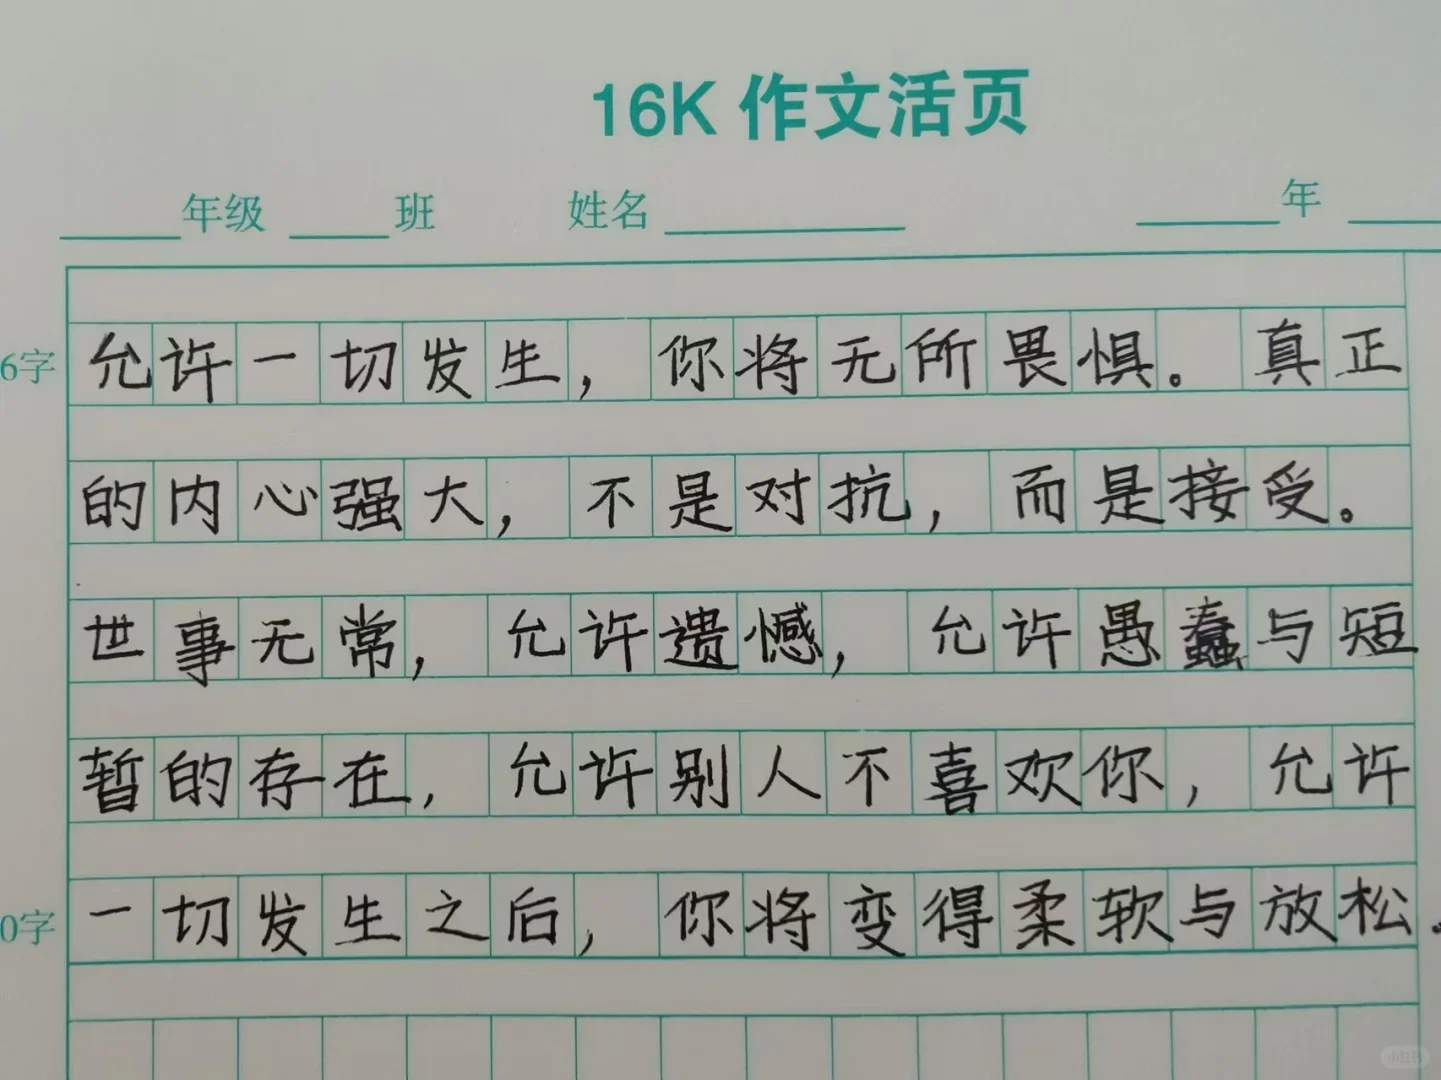 16K 作文活页
年级 班 姓名 年
6字
允许一切发生，你将无所畏惧。真正
的内心强大，不是对抗，而是接受。
世事无常，允许遗憾，允许愚蠢与短
暂的存在，允许别人不喜欢你，允许
0字
一切发生之后，你将变得柔软与放松。
小红书